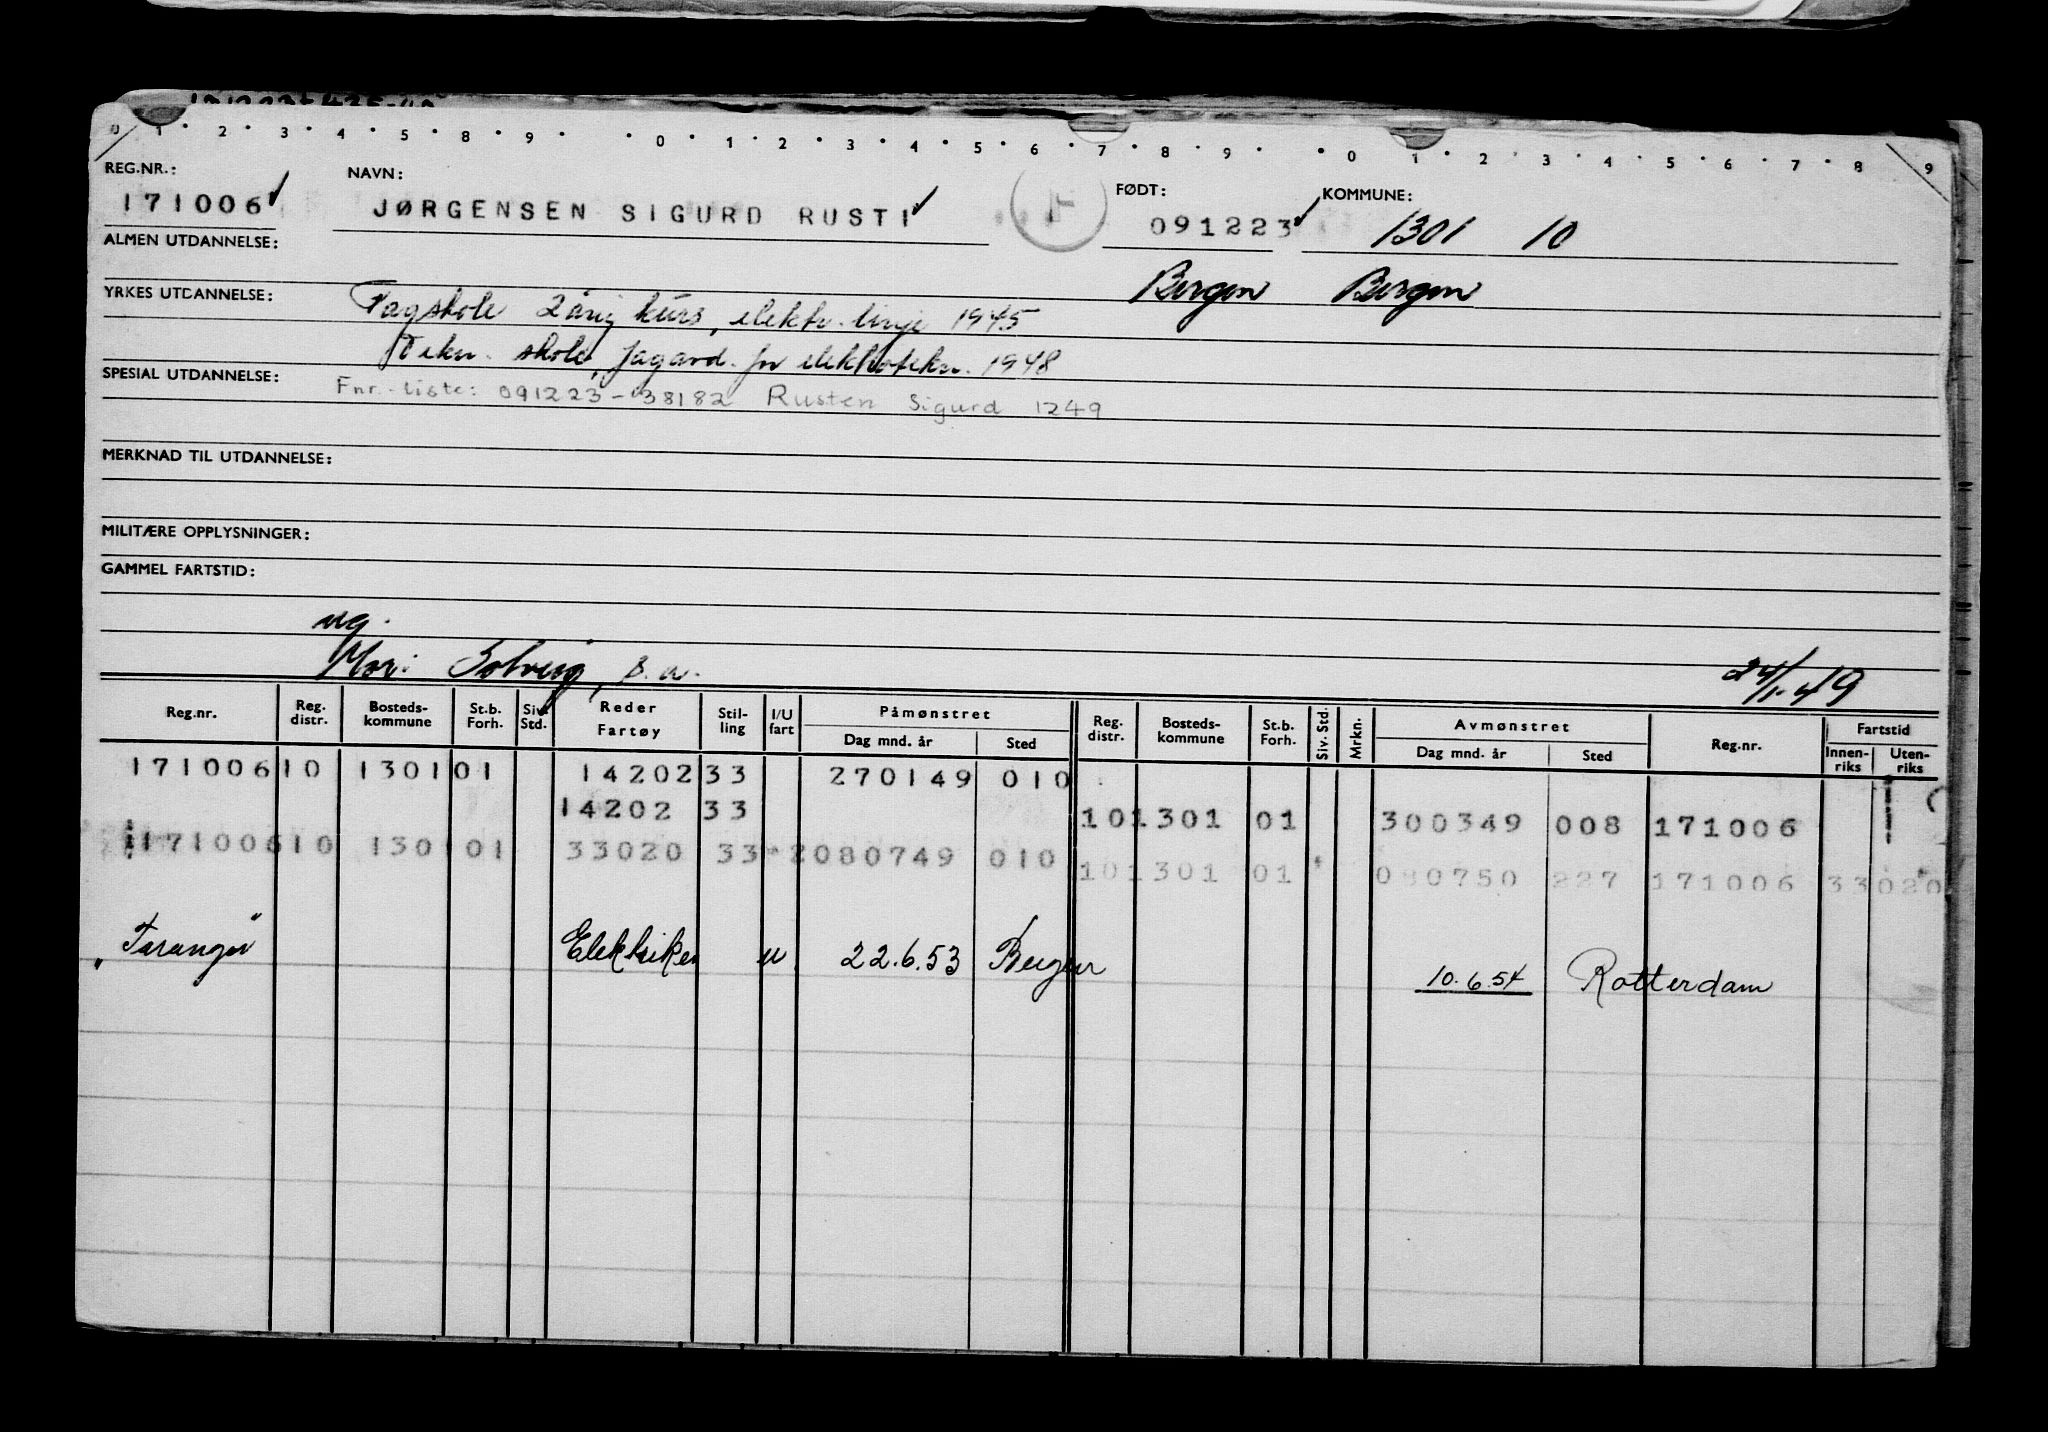 0 1 2 3 4 5 8 9 0 1 2 3 4 5 6 7 8 9 0 1 2 3 4 5 6 7 8 9
REG.NR.: NAVN: FØDT: KOMMUNE:
171006 JØRGENSEN SIGURD RUSTI 091223 1301 10
ALMEN UTDANNELSE:
Bergen Bergen
YRKES UTDANNELSE: Fagskole 2 årig kurs, elektr. linje 1945
Tekn. skole, fagavd. for elektrotekn. 1948
SPESIAL UTDANNELSE: Fnr.-liste: 091223-38182 Rusten Sigurd 1249
MERKNAD TIL UTDANNELSE:
MILITÆRE OPPLYSNINGER:
GAMMEL FARTSTID:
ug.
Mor: Solveig, s.a. 24/1-49
Reg.nr. Reg. distr. Bosteds-kommune St.b. Forh. Siv. Std. Reder Fartøy Stil-ling I/U fart Påmønstret Dag mnd. år Sted Reg. distr. Bosteds-kommune St.b. Forh. Siv. Std. Mrkn. Avmønstret Dag mnd. år Sted Reg.nr. Fartstid Innen-riks Uten-riks
171006 10 1301 01 14202 33 270149 010
14202 33 10 1301 01 300349 008 171006
171006 10 130 01 33020 33 2 080749 010
10 1301 01 080750 227 171006 33020
"Taranger" Elektriker u 22.6.53 Bergen 10.6.54 Rotterdam